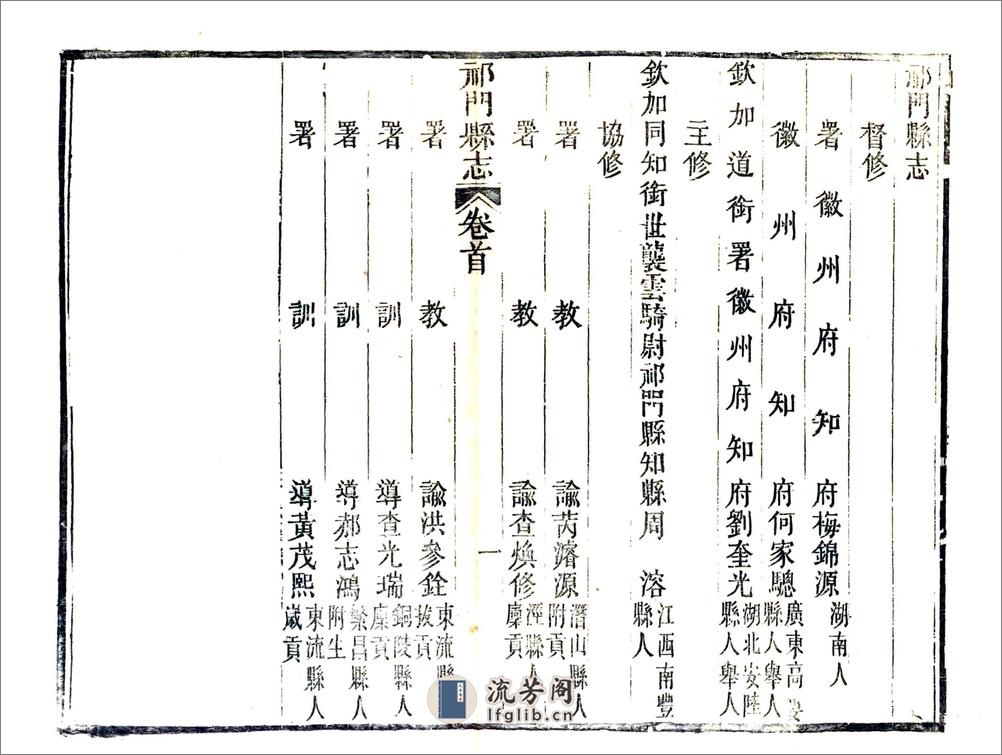 祁門縣志
督修
署徽州府知府梅錦源湖南人
徽州府知府何家驄廣東高縣人舉人
欽加道銜署徽州府知府劉奎光湖北安陸縣人舉人
主修
欽加同知銜世襲雲騎尉祁門縣知縣周溶江西南豐縣人
協修
署教諭芮濬源潛山縣人附貢
署教諭查煥修涇縣人廩貢
祁門縣志 卷首 一
署教諭洪參銓東流縣拔貢
署訓導查光瑞銅陵縣人廩貢
署訓導郝志鴻繁昌縣人附生
署訓導黃茂熙東流縣人歲貢
流芳阁
lfglib.cn